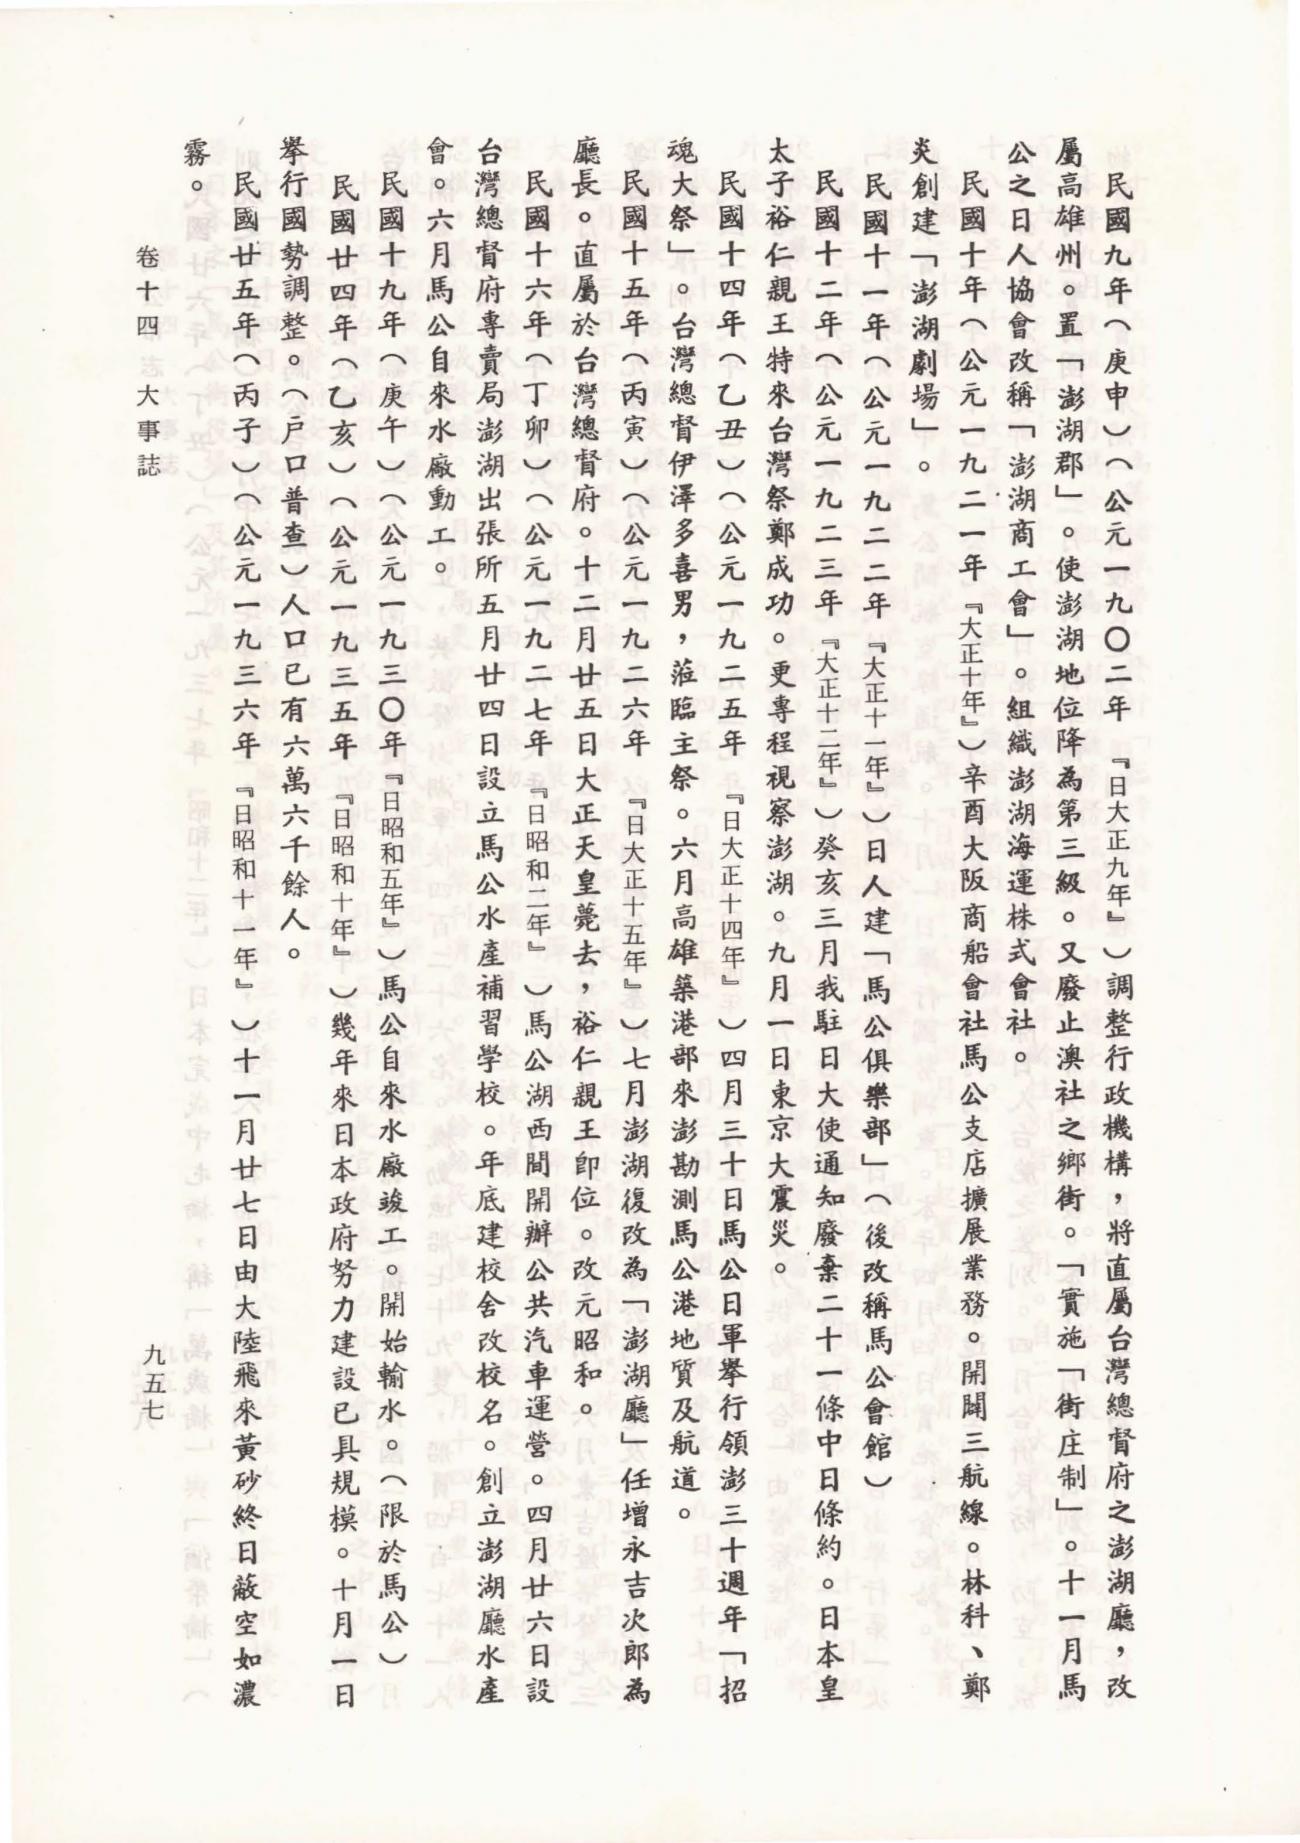 民國九年（庚申）（公元一九〇二年『日大正九年』）調整行政機構，將直屬台灣總督府之澎湖廳，改
屬高雄州。置「澎湖郡」。使澎湖地位降為第三級。又廢止澳社之鄉街。「實施「街庄制」。十一月馬
公之日人協會改稱「澎湖商工會」。組織澎湖海運株式會社。
民國十年（公元一九二一年『大正十年』）辛酉大阪商船會社馬公支店擴展業務。開闢三航線。林科、鄭
炎創建「澎湖劇場」。
民國十一年（公元一九二二年『大正十一年』）日人建「馬公俱樂部」（後改稱馬公會館）
民國十二年（公元一九二三年『大正十二年』）癸亥三月我駐日大使通知廢棄二十一條中日條約。日本皇
太子裕仁親王特來台灣祭鄭成功。更專程視察澎湖。九月一日東京大震災。
民國十四年（乙丑）（公元一九二五年『日大正十四年』）四月三十日馬公日軍舉行領澎三十週年「招
魂大祭」。台灣總督伊澤多喜男，蒞臨主祭。六月高雄築港部來澎勘測馬公港地質及航道。
民國十五年（丙寅）（公元一九二六年『日大正十五年』）七月澎湖復改為「澎湖廳」任增永吉次郎為
廳長。直屬於台灣總督府。十二月廿五日大正天皇薨去，裕仁親王即位。改元昭和。
民國十六年（丁卯）（公元一九二七年『日昭和二年』）馬公湖西間開辦公共汽車運營。四月廿六日設
台灣總督府專賣局澎湖出張所五月廿四日設立馬公水產補習學校。年底建校舍改校名。創立澎湖廳水產
會。六月馬公自來水廠動工。
民國十九年（庚午）（公元一九三〇年『日昭和五年』）馬公自來水廠竣工。開始輸水。（限於馬公）
民國廿四年（乙亥）（公元一九三五年『日昭和十年』）幾年來日本政府努力建設已具規模。十月一日
舉行國勢調整。（戶口普查）人口已有六萬六千餘人。
民國廿五年（丙子）（公元一九三六年『日昭和十一年』）十一月廿七日由大陸飛來黃砂終日蔽空如濃
霧。
卷十四 志大事誌
九五七